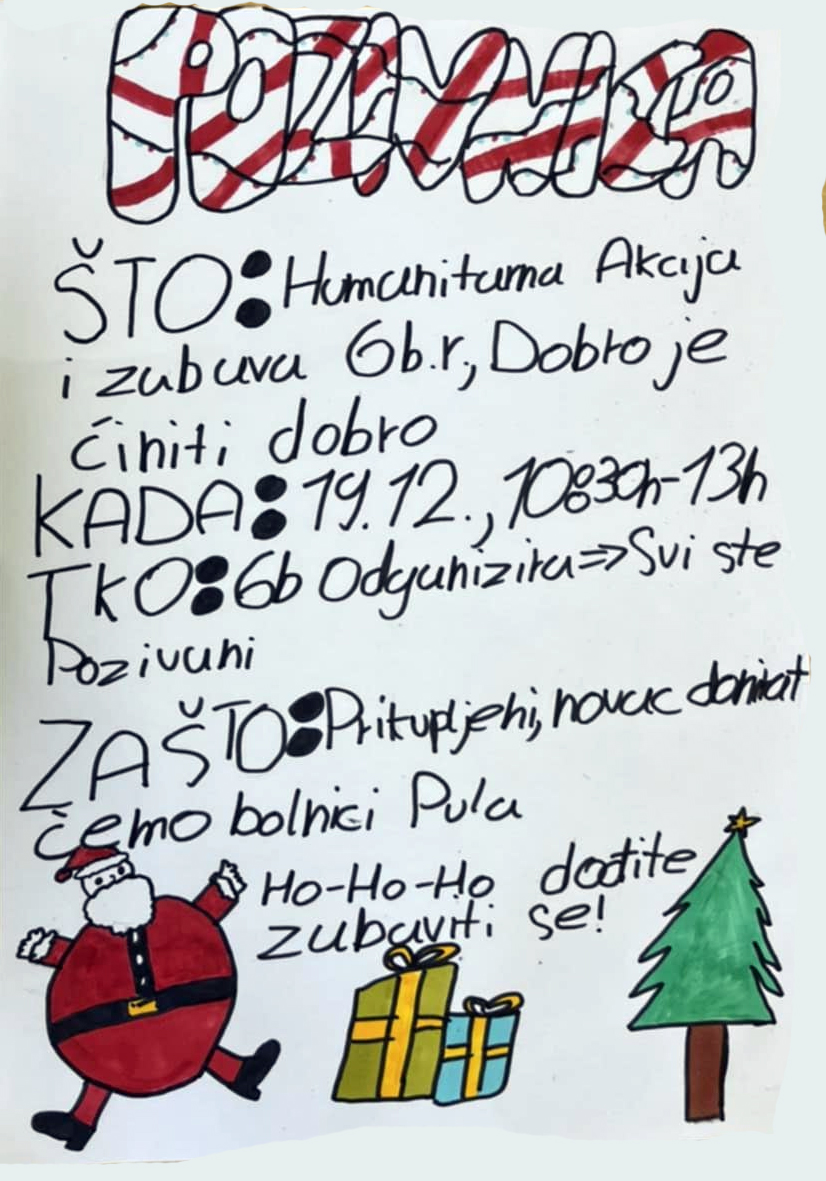 POZIVNICA
ŠTO: Humanitarna Akcija
i zabava 6b.r, Dobro je
činiti dobro
KADA: 19.12., 10:30h-13h
TKO: 6b Odganizira=> Svi ste
Pozivani
ZAŠTO: Prikupljeni, novac donirat
ćemo bolnici Pula
Ho-Ho-Ho dođite
zabaviti se!